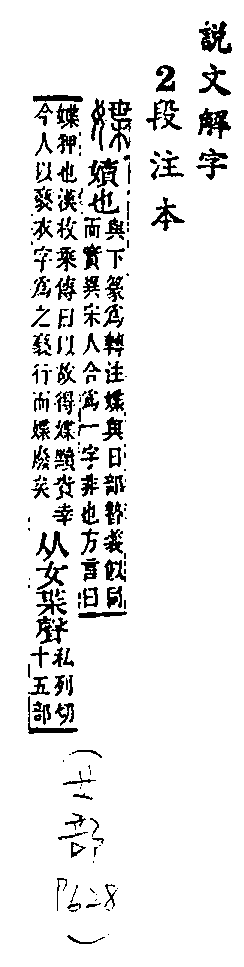 說文解字
2段注本
媟 嬻也 與下篆爲轉注媟與日部暬義似同
而實異宋人合爲一字非也方言曰
媟狎也漢枚乘傳曰以故得媟黷貴幸
今人以褻衣字爲之褻行而媟廢矣
从女枼聲 私列切
十五部
(女部
P628)